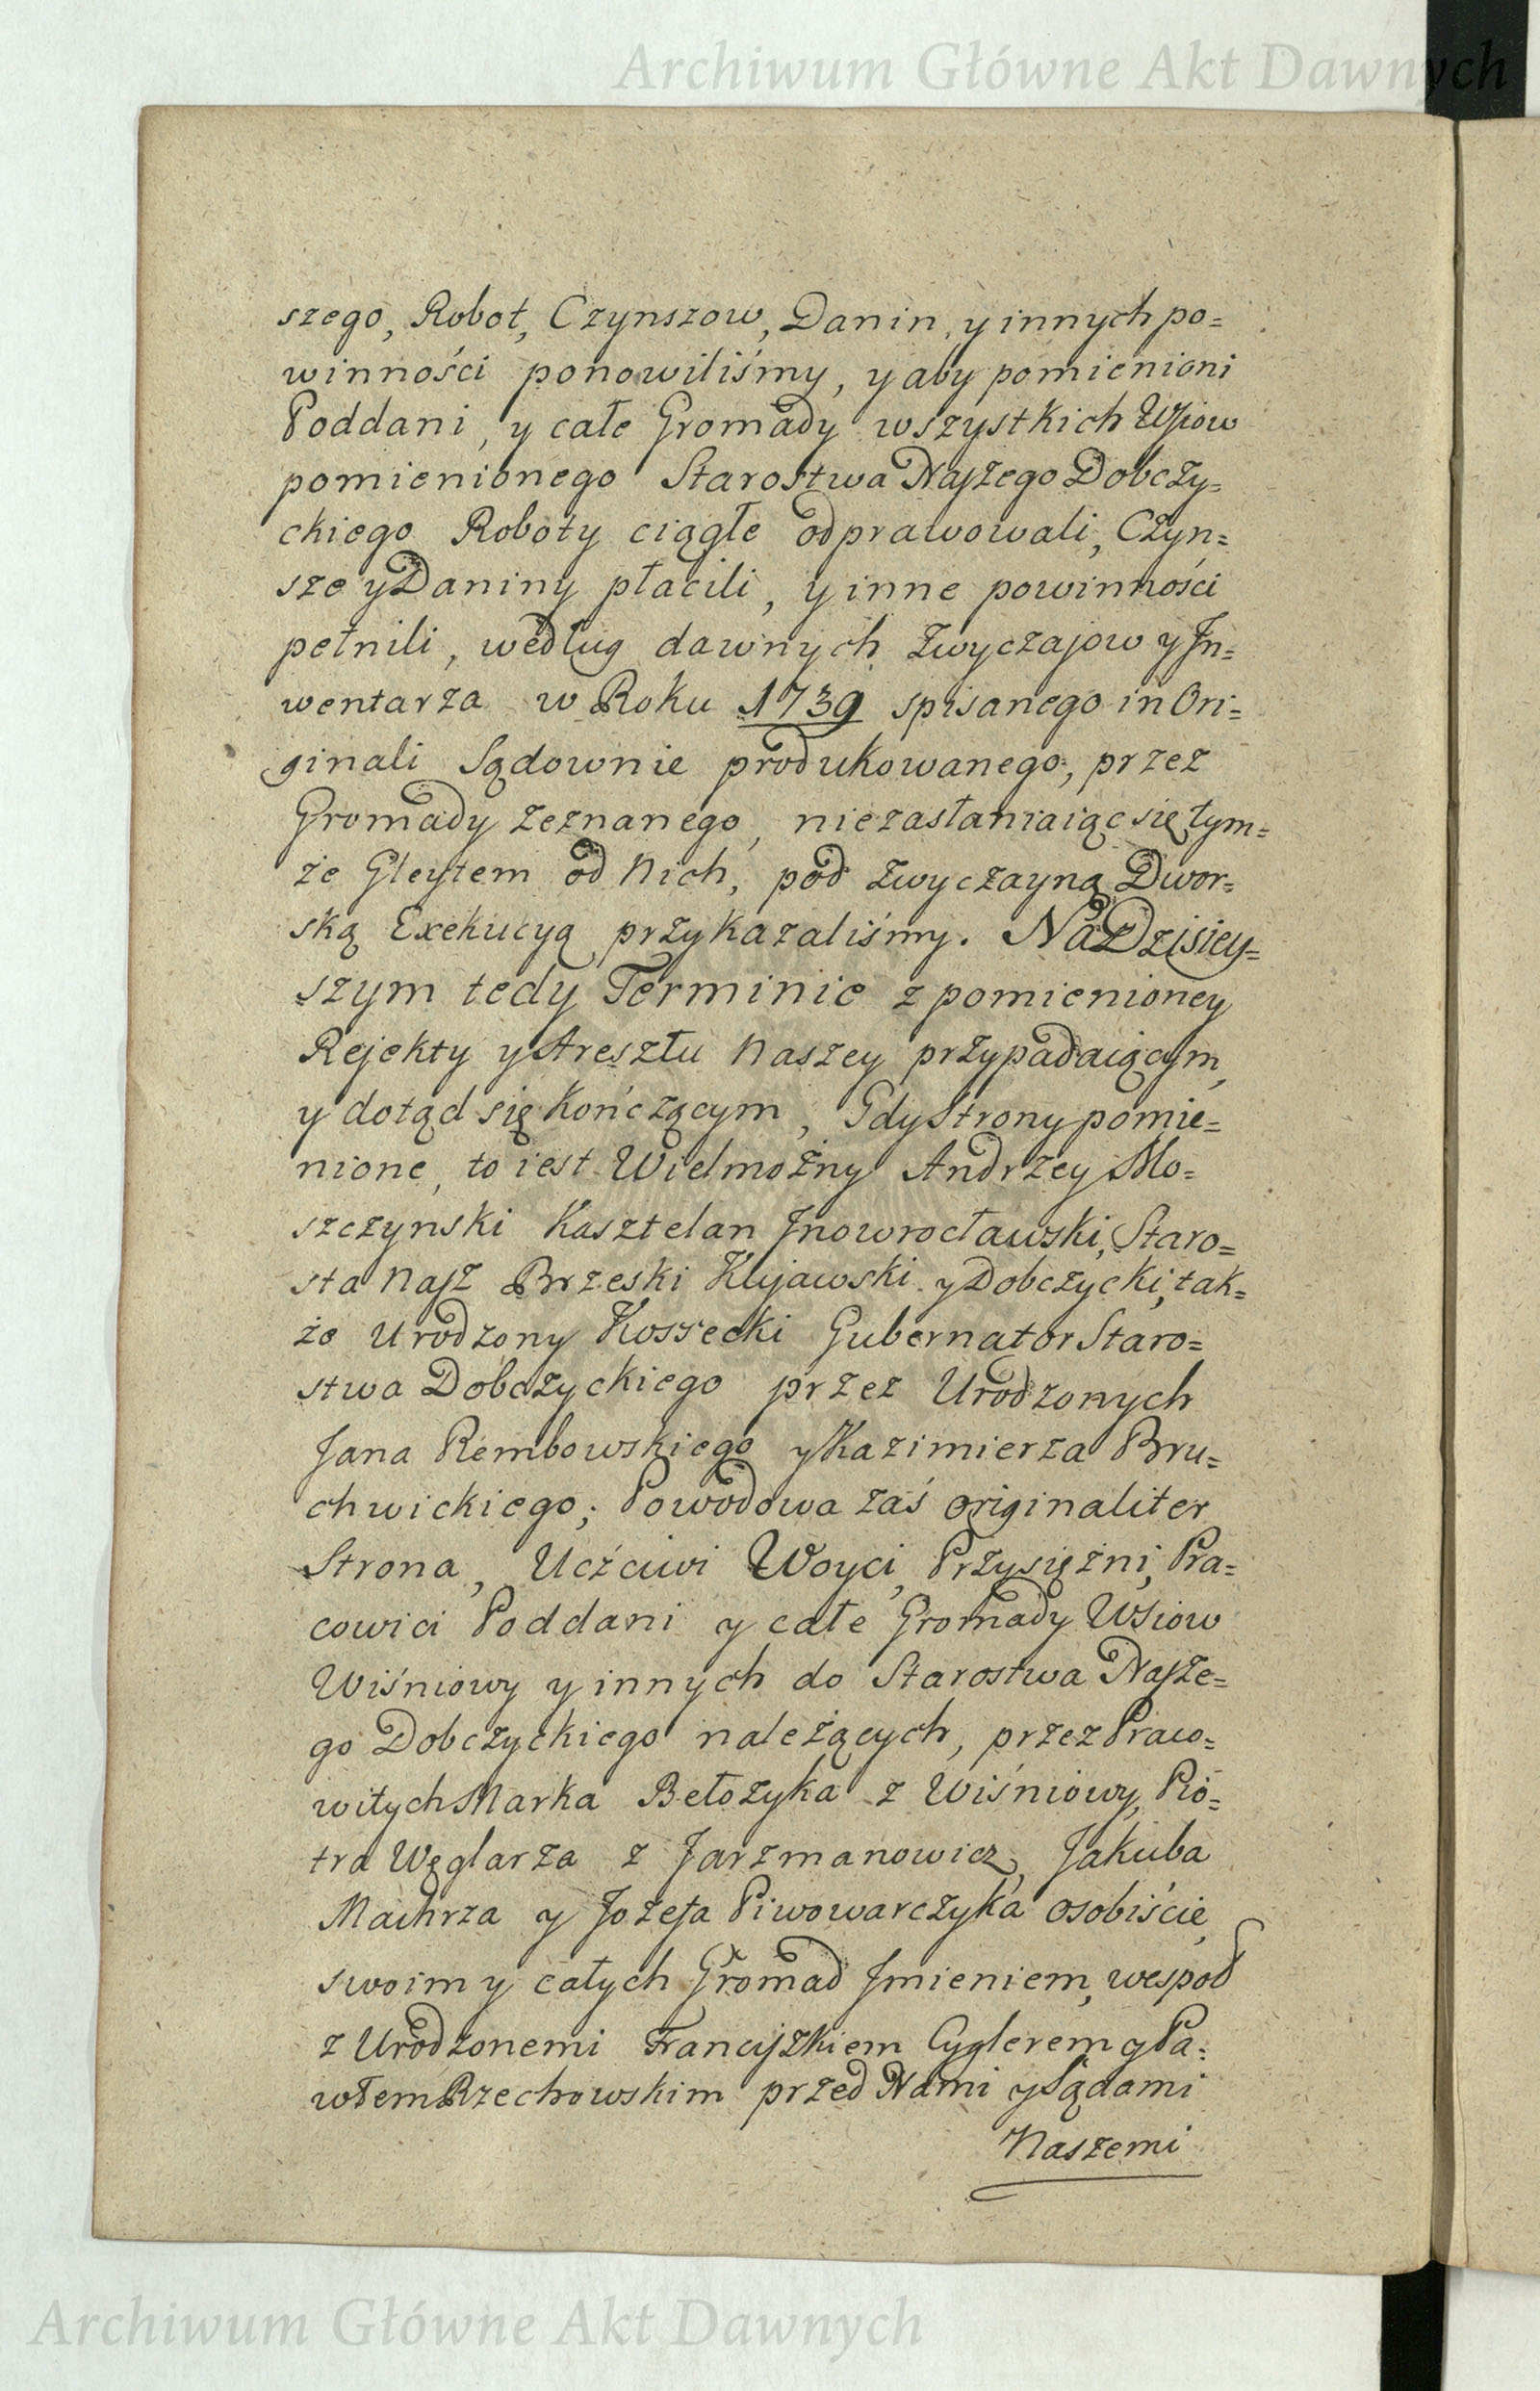 Archiwum Główne Akt Dawnych
szego, Robot, Czynszow, Danin, y innych po=
winności ponowiliśmy, y aby pomienioni
Poddani, y całe Gromady wszystkich Wsiow
pomienionego Starostwa Naszego Dobczy=
ckiego Roboty ciągłe odprawowali, Czyn=
sze y Daniny płacili, y inne powinności
pełnili, według dawnych zwyczajow y In=
wentarza w Roku 1739 spisanego in Ori=
ginali Sądownie produkowanego, przez
Gromady zeznanego, niezasłaniaiąc się tym=
że Gleytem od Nich, pod zwyczayną Dwor=
ską Exekucyą przykazaliśmy. Na Dzisiey=
szym tedy Terminie z pomienioney
Rejekty y Aresztu Naszey przypadaiącym,
y dotąd się kończącym, Gdy Strony pomie=
nione, to iest Wielmożny Andrzey Mo=
szczynski Kasztelan Inowrocławski, Staro=
sta Nasz Brzeski Kujawski y Dobczycki, tak=
że Urodzony Kossecki Gubernator Staro=
stwa Dobczyckiego przez Urodzonych
Jana Rembowskiego y Kazimierza Bru=
chwickiego; Powodowa zaś originaliter
Strona, Uczciwi Woyci, Przysiężni, Pra=
cowici Poddani y całe Gromady Wsiow
Wiśniowy y innych do Starostwa Nasze=
go Dobczyckiego należących, przez Praco=
witych Marka Bełozyka z Wiśniowy, Pio=
tra Węglarza z Jarzmanowicz, Jakuba
Machrza y Jozefa Piwowarczyka osobiście,
swoim y całych Gromad Imieniem, wespoł
z Urodzonemi Franciszkiem Cyglerem y Pa=
włem Rzechowskim przed Nami y Sądami
Naszemi
Archiwum Główne Akt Dawnych